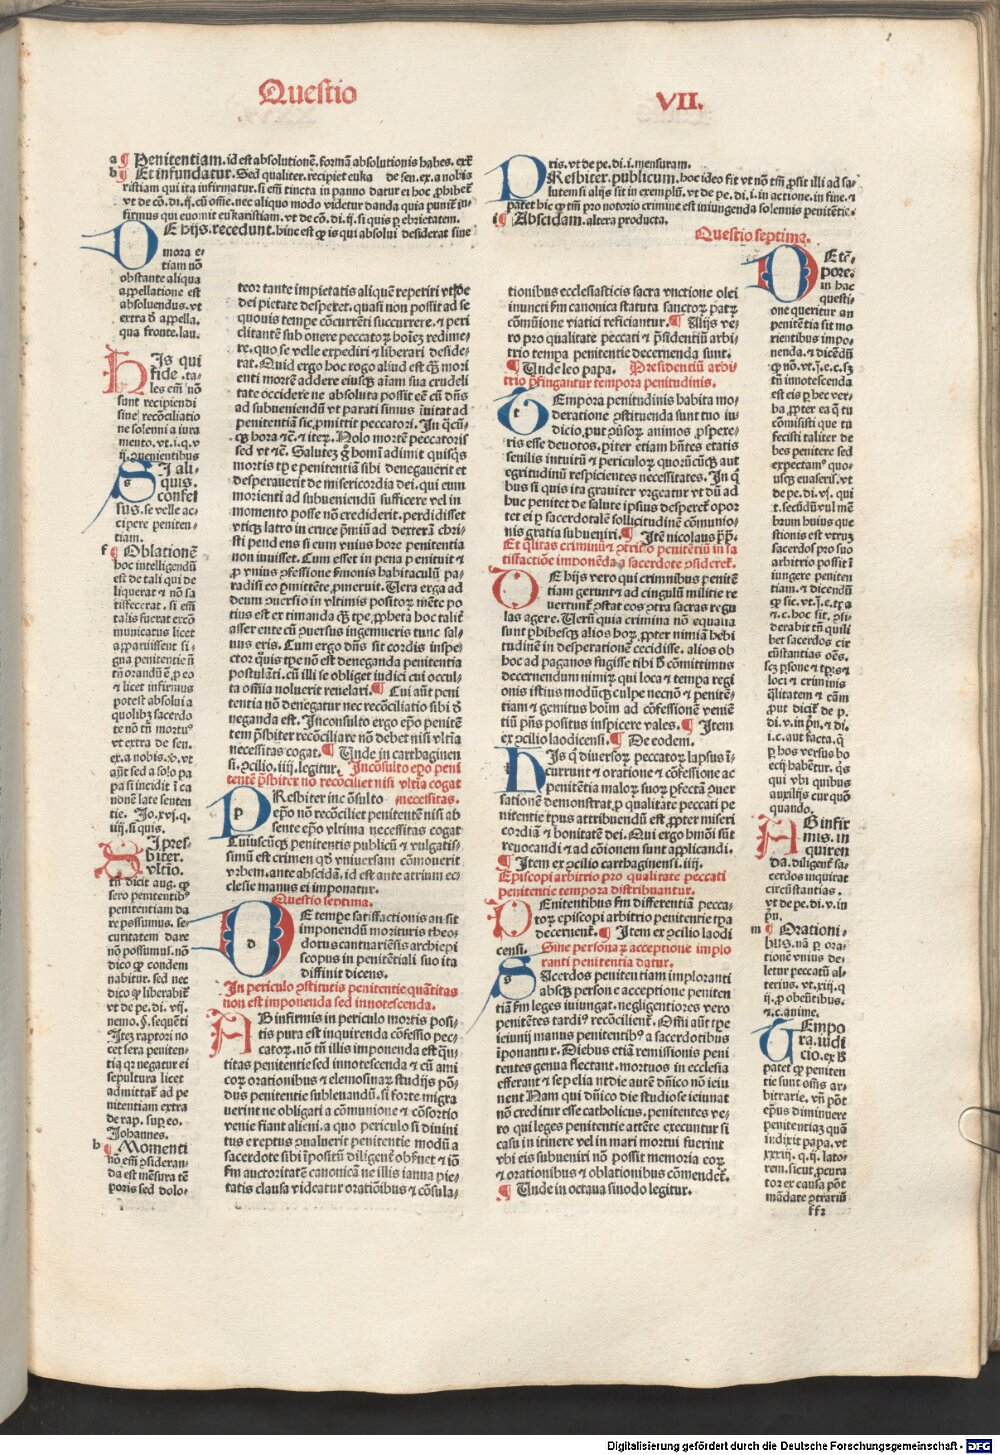 Questio
VII.
a ¶ Penitentiam. id est absolutionē. formā absolutionis habes. ext̄
b ¶ Et infundatur. Sed qualiter recipiet euka de sen. ex. a nobis
ristiam qui ita infirmatur. si em̄ tincta in panno datur ei hoc ꝓhibet᷑
vt de cō. di. ij. cū om̄e. nec aliquo modo videtur danda quia punit᷑ in⸗
firmus qui euomit eukaristiam. vt de cō. di. ij. si quis ꝑ ebrietatem.
DE hijs. recedunt. hinc est ꝙ is qui absolui desiderat sine
mora e⸗
tiam nō
obstante aliqua
appellatione est
absoluendus. vt
extra d̄ appella.
qua fronte. lau.
HIs qui
t̄ide .ta⸗
les em̄ nō
sunt recipiendi
sine recōciliatio
ne solenni a iura
mento. vt. i. q. v
ij. quenientibus
SI ali⸗
quis.
confes
sus. se velle ac⸗
cipere peniten⸗
tiam.
f ¶ Oblationē
hoc intelligendū
est de tali qui de
liquerat ⁊ nō sa
tisfecerat. si em̄
talis fuerat excō
municatus licet
apparuissent si⸗
gna penitentie n̄
tn̄ orandū ē ꝓ eo
⁊ licet infirmus
potest absolui a
quolibꝫ sacerdo
te nō tn̄ mortu⁹
vt extra de sen.
ex. a nobis. ꝟ. vt
aūt sed a solo pa
pa si incidit ī ca
nonē late senten
tie. Io. xvj. q.
iij. si quis.
SI pres⸗
biter.
vltīo.
tn̄ dicit aug. ꝙ
sero penitentib⁹
penitentiam da
re possumus. se⸗
curitatem dare
nō possumus. nō
dico ꝙ condem
nabitur. sed nec
dico ꝙ liberabit᷑
vt de pe. di. vij.
nemo. §. sequēti
Itē raptori no
cet sera peniten⸗
tia qꝛ negatur ei
sepultura licet
admittat᷑ ad pe
nitentiam extra
de rap. suꝑ eo.
Johannes.
b ¶ Momenti
nō em̄ ꝯsideran⸗
da est mēsura tē
poris sed dolo⸗
teor tante impietatis aliquē reperiri vt sp̄e
dei pietate desperet. quasi non possit ad se
quouis tempe cōcurrēti succurrere. ⁊ peri
clitantē sub onere peccatoꝝ hoīez redime⸗
re. quo se velle expediri ⁊ liberari deside⸗
rat. Quid ergo hoc rogo aliud est ꝙ mori
enti mortē addere eiusqꝫ aīam sua crudeli
tate occidere ne absoluta possit eē cū dn̄s
ad subueniendū vt parati simus īuitat ad
penitentiā sic ꝓmittit peccatori. In qcū⸗
qꝫ hora ⁊c̄. ⁊ iteꝝ. Nolo mortē peccatoris
sed vt ⁊c̄. Salutez ꝗ̄ homī adimit quisqꝫ
mortis tꝑe penitentiā sibi denegauerit et
desperauerit de misericordia dei. qui eum
morienti ad subueniendū sufficere vel in
momento posse nō crediderit. perdidisset
vtiqꝫ latro in cruce p̄miū ad dexterā chri⸗
sti pendens si eum vnius hore penitentia
non iuuisset. Cum esset in pena penituit ⁊
ꝑ vnius ꝓfessione s̄monis habitaculū pa⸗
radisi eo ꝓmittēte ꝓmeruit. Vera erga ad
deum ꝯuersio in vltimis positoꝝ mēte po
tius est extimanda ꝙ tꝑe. ꝓpheta hoc talit᷑
asserente cū ꝯuersus ingemueris tunc sal⸗
uus eris. Cum ergo dn̄s sit cordis inspe⸗
ctor quis tꝑe nō est deneganda penitentia
postulāti. cū illi se obliget iudici cui occul⸗
ta om̄ia nouerit reuelari. ¶ Cui aūt peni
tentia nō denegatur nec recōciliatio sibi d̄
neganda est. Inconsulto ergo epo penitē
tem p̄sbiter recōciliare nō debet nisi vltīa
necessitas cogat. ¶ Vnde in carthaginen
si. ꝯcilio. iiij. legitur. Incōsulto epo peni
tentē p̄sbiter nō recōciliet nisi vltīa cogat
PResbiter incōsulto necessitas.
epo nō recōciliet penitentē nisi ab
sente epo vltima necessitas cogat
Cuiuscūqꝫ penitentis publicū ⁊ vulgatis⸗
simū est crimen qd̄ vniuersam cōmouerit
vrbem. ante abscidā. id est ante atrium ec⸗
clesie manus ei imponatur.
Questio septima.
DE tempe satisfactionis an sit
imponendū morituris theo⸗
dorus cantuariēsis archiepi
scopus in penitētiali suo ita
diffinit dicens.
In periculo ꝯstitutis penitentie quātitas
non est imponenda sed innotescenda.
AB infirmis in periculo mortis posi⸗
tis pura est inquirenda cōfessio pec⸗
catoꝝ. nō tn̄ illis imponenda est q̄n
titas penitentie sed innotescenda ⁊ cū ami
coꝝ orationibus ⁊ elemosinaꝝ studijs pō⸗
dus penitentie subleuandū. si forte migra
uerint ne obligati a cōmunione ⁊ cōsortio
venie fiant alieni. a quo periculo si diuini
tus ereptus ꝯualuerit penitentie modū a
sacerdote sibi īpositū diligent᷑ obseruet ⁊ iō
s̄m auctoritatē canonicā ne illis ianua pie⸗
tatis clausa videatur oratiōibus ⁊ cōsula⸗
pris. vt de pe. di. i. mensuram.
PResbiter. publicum. hoc ideo fit vt nō tm̄ ꝓsit illi ad sa⸗
lutem si alijs sit in exemplū. vt de pe. di. i. in actione. in fine. ⁊
patet hic ꝙ tm̄ pro notorio crimine est iniungenda solennis penitētie.
i ¶ Abscidam. altera producta.
Questio septima.
tionibus ecclesiasticis sacra vnctione olei
inuncti s̄m canonica statuta sanctoꝝ patꝝ
cōmūione viatici reficiantur. ¶ Alijs ve⸗
ro pro qualitate peccati ⁊ p̄sidentiū arbi⸗
trio tempa penitentie decernenda sunt.
¶ Vnde leo papa. Presidentiū arbi
trio p̄fingantur tempora penitudinis.
TEmpora penitudinis habita mo⸗
deratione ꝯstituenda sunt tuo iu⸗
dicio. put ꝯuersoꝝ animos ꝓspexe⸗
ris esse deuotos. piter etiam hn̄tes etatis
senilis intuitū ⁊ periculoꝝ quoꝝcūqꝫ aut
egritudinū respicientes necessitates. In q̄
bus si quis ita grauiter vrgeatur vt dū ad
huc penitet de salute ipsius desperet᷑ opor
tet ei ꝑ sacerdotalē sollicitudinē cōmunio⸗
nis gratia subueniri. ¶ Itē nicolaus pp̄.
Et q̄litas criminū ⁊ ꝯtritio penitētiū in sa
tisfactiōe imponēda a sacerdote ꝯsideret᷑.
DE hijs vero qui criminibus penitē
tiam gerunt ⁊ ad cingulū militie re
uertunt᷑ ꝯstat eos ꝯtra sacras regu
las agere. Verū quia crimina nō equalia
sunt ꝑhibesqꝫ alios hoꝝ ꝓpter nimiā hebi
tudinē in desperationē cecidisse. alios ob
hoc ad paganos fugisse tibi h̄ cōmittimus
decernendum nimirꝫ qui loca ⁊ tempa regi
onis istius modūqꝫ culpe necnō ⁊ penitē⸗
tiam ⁊ gemitus hoīm ad cōfessionē veniē
tiū pn̄s positus inspicere vales. ¶ Item
ex ꝯcilio laodicensi. ¶ De eodem.
HIs q̄ diuersoꝝ peccatoꝝ lapsus ī⸗
currunt ⁊ oratione ⁊ cōfessione ac
penitētia maloꝝ suoꝝ ꝑfectā ꝯuer
sationē demonstrāt ꝓ qualitate peccati pe
nitentie tp̄us attribuendū est ꝓpter miseri
cordiā ⁊ bonitatē dei. Qui ergo hm̄ōi sūt
reuocandi ⁊ ad cōionem sunt applicandi.
¶ Item ex ꝯcilio carthaginensi. iiij.
Episcopi arbitrio pro qualitate peccati
penitentie tempora distribuantur.
PEnitentibus s̄m differentiā pecca⸗
toꝝ episcopi arbitrio penitentie tꝑa
decernent᷑. ¶ Item ex ꝯcilio laodi
censi. Sine personaꝝ acceptione implo
ranti penitentia datur.
SAcerdos penitentiam imploranti
absqꝫ persone acceptione peniten
tiā s̄m leges iniungat. negligentiores vero
penitētes tardi⁹ recōcilient. Om̄i aūt tꝑe
ieiunij manus penitentib⁹ a sacerdotibus
īponantur. Diebus etiā remissionis peni
tentes genua flectant. mortuos in ecclesia
efferant ⁊ sepelia nt die autē dn̄ico nō ieiu
nent Nam qui dn̄ico die studiose ieiunat
nō creditur esse catholicus. penitentes ve⸗
ro qui leges penitentie attēte execuntur si
casu in itinere vel in mari mortui fuerint
vbi eis subueniri nō possit memoria eoꝝ
⁊ orationibus ⁊ oblationibus cōmendet᷑.
¶ Vnde in octaua sinodo legitur.
DE tē⸗
pore.
in hac
questi⸗
one queritur an
penitētia sit mo
rientibus impo⸗
nenda. ⁊ dicēdū
ꝙ nō. vt. j. e. c. sꝫ
tn̄ innotescenda
est eis ꝑ hec ver⸗
ba. ꝓpter ea q̄ tu
cōmisisti que tu
fecisti taliter de
bes penitere sed
expectam⁹ quo⸗
usqꝫ euaseris. vt
de pe. di. vj. qui
t. secūdū vul mē
brum huius que
stionis est vtrūꝫ
sacerdos pro suo
arbitrio possit ī
iungere peniten
tiam. ⁊ dicendū
ꝙ sic. vt. j. e. tꝑa
⁊. c. hoc sit. ꝯsi⸗
derabit tn̄ quili
bet sacerdos cir
cūstantias oēs.
scꝫ ꝑsone ⁊ tꝑis ⁊
loci ⁊ criminis
q̄litatem ⁊ cām
put dicit᷑ de p.
di. v. in pn̄. ⁊ di.
i. c. aut facta. q̄
ꝑ hos versus ho
ecij habēt᷑. q̄s
qui vbi quibus
auxilijs cur quō
quando.
AB infir
mis. in
quiren
da. diligent᷑ sa⸗
cerdos inquirat
circūstantias.
vt de pe. di. v. in
pn̄.
m ¶ Orationi⸗
bus. nā ꝑ ora⸗
tionē vnius de⸗
letur peccatū al⸗
terius. vt. xiij. q
ij. ꝓ obeūtibus.
⁊. c. anime.
TEmpo
ra. iudi
cio. ex h̄
patet ꝙ peniten
tie sunt om̄s ar⸗
bitrarie. vn̄ pōt
ep̄us diminuere
penitentiaꝫ quā
indixit papa. vt
xxxiij. q. ij. lato⸗
rem. sicut ꝓcura
tor ex causa pōt
mādare ꝯtrariū
ff2
Digitalisierung gefördert durch die Deutsche Forschungsgemeinschaft - DFG